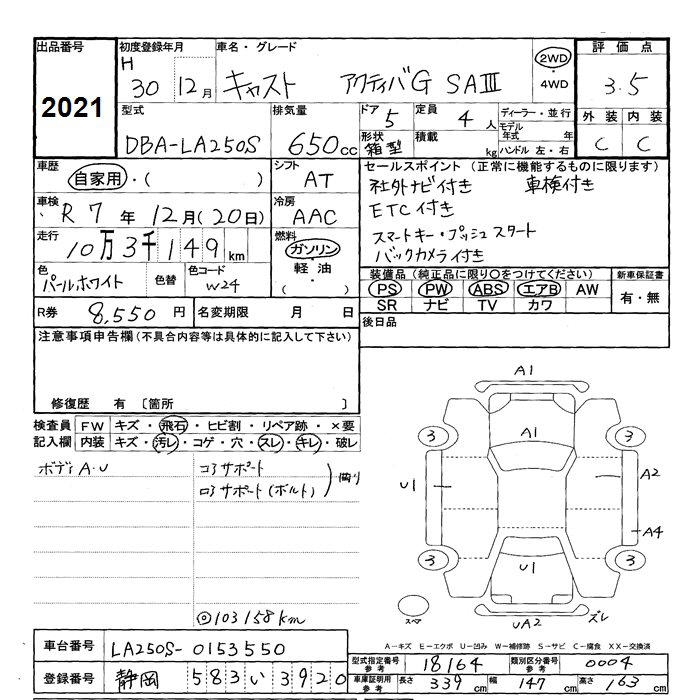 出品番号 2021
初度登録年月 H 30 12月
車名・グレード キャスト アクティバG SAⅢ
2WD・4WD
評価点 3.5
外装 内装
C C
型式 DBA-LA250S
排気量 650cc
ドア 5
形状 箱型
定員 4人
積載 kg
ディーラー・並行
モデル年式 年
ハンドル 左・右
車歴 自家用・( )
シフト AT
車検 R7年12月(20日)
冷房 AAC
走行 10万3千149km
燃料 ガソリン
軽油・
( )
色 パールホワイト
色替
色コード W24
R券 8,550円
名変期限 月 日
セールスポイント(正常に機能するものに限ります)
社外ナビ付き 車検付き
ETC付き
スマートキー・プッシュスタート
バックカメラ付き
装備品(純正品に限り○をつけてください)
PS PW ABS エアB AW
SR ナビ TV カワ
新車保証書
有・無
後日品
注意事項申告欄(不具合内容等は具体的に記入して下さい)
修復歴 有 〔箇所 〕
検査員 FW キズ・飛石・ヒビ割・リペア跡・×要
記入欄 内装 キズ・汚レ・コゲ・穴・スレ・キレ・破レ
ボディA・U
コアサポート
ロアサポート(ボルト)
◎103158km
A1
3 A1 3
U1 A2
A4
3 U1 3
UA2 ズレ
A－キズ E－エクボ U－凹み W－補修跡 S－サビ C－腐食 XX－交換済
車台番号 LA250S-0153550
登録番号 静岡 583 い 3920
型式指定番号 参考 18164
類別区分番号 参考 0004
車庫証明用 参考 長さ 339cm 幅 147cm 高さ 163cm